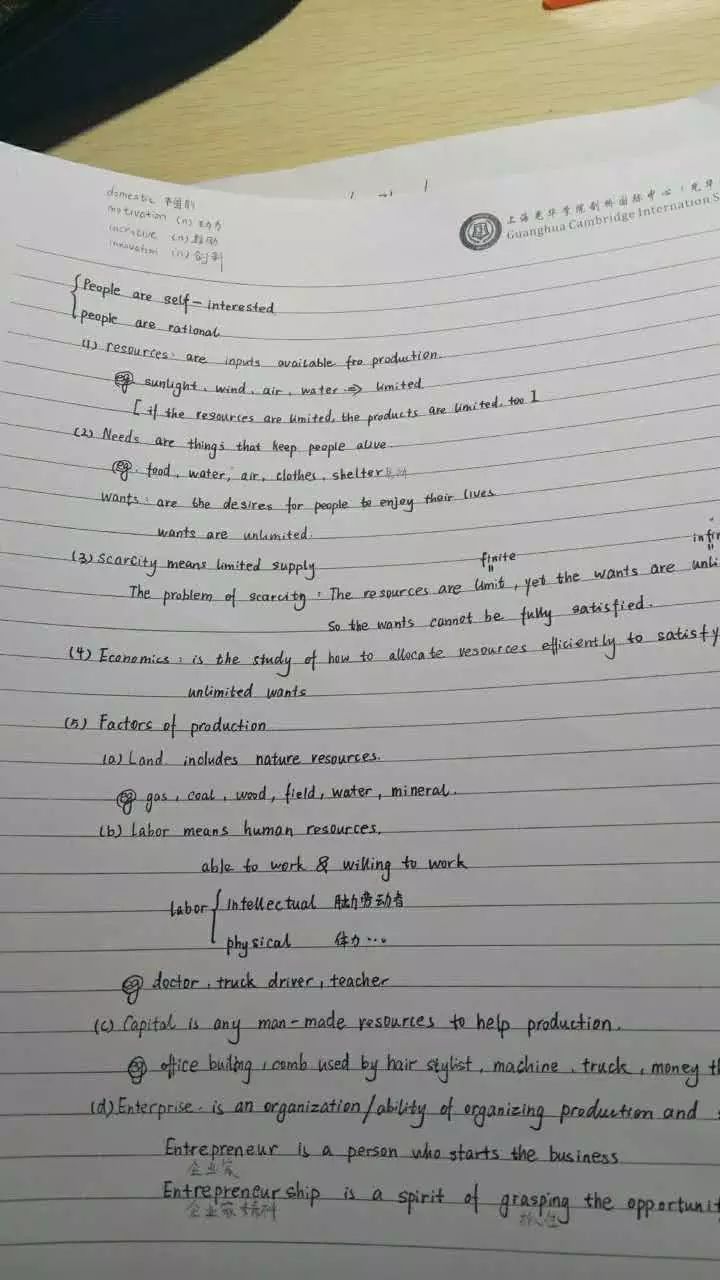 domestic 本国的
motivation (n) 动力
incentive (n) 鼓励
innovation (n) 创新
上海光华学院剑桥国际中心（光华
Guanghua Cambridge International S
People are self-interested
people are rational
(1) resources: are inputs available fro production.
eg sunlight, wind, air, water ⇒ limited
[ if the resources are limited, the products are limited, too ]
(2) Needs are things that keep people alive.
eg. food, water, air, clothes, shelter
wants: are the desires for people to enjoy their lives
wants are unlimited.
(3) Scarcity means limited supply
finite infin
The problem of scarcity: The resources are limit, yet the wants are unli
So the wants cannot be fully satisfied.
(4) Economics: is the study of how to allocate resources efficiently to satisfy
unlimited wants
(5) Factors of production
(a) Land includes nature resources.
eg gas, coal, wood, field, water, mineral.
(b) Labor means human resources.
able to work & willing to work
labor intellectual 脑力劳动者
physical 体力…
eg doctor, truck driver, teacher
(c) Capital is any man-made resources to help production.
eg office builbng, comb used by hair stylist, machine, truck, money th
(d) Enterprise. is an organization/ability of organizing production and
Entrepreneur is a person who starts the business
企业家
Entrepreneurship is a spirit of grasping the opportunit
企业家精神